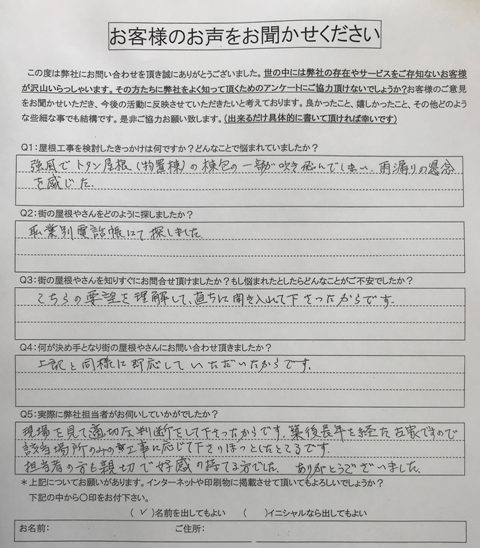 お客様のお声をお聞かせください
この度は弊社にお問い合わせを頂き誠にありがとうございました。世の中には弊社の存在やサービスをご存知ないお客様
が沢山いらっしゃいます。その方たちに弊社をよく知って頂くためのアンケートにご協力頂けないでしょうか?お客様のご意見
をお聞かせいただき、今後の活動に反映させていただきたいと考えております。良かったこと、嬉しかったこと、その他どのよう
な些細な事でも結構です。是非ご協力お願い致します。(出来るだけ具体的に書いて頂ければ幸いです)
Q1:屋根工事を検討したきっかけは何ですか?どんなことで悩まれていましたか?
強風でトタン屋根(物置棟)の棟包の一部が吹き飛んでしまい、雨漏りの懸念
を感じた.
Q2:街の屋根やさんをどのように探しましたか?
職業別電話帳にて探しました
Q3:街の屋根やさんを知りすぐにお問合せ頂けましたか?もし悩まれたとしたらどんなことがご不安でしたか?
こちらの要望を理解して、直ちに聞き入れて下さったからです.
Q4:何が決め手となり街の屋根やさんにお問い合わせ頂きましたか?
上記と同様に即応していただいたからです.
Q5:実際に弊社担当者がお伺いしていかがでしたか?
現場を見て適切な判断をして下さったからです.築後長年を経た在家ですので
該当場所のみの工事に応じて下さりほっとしたところです.
担当者の方も親切で好感の持てる方でした. ありがとうございました.
*上記についてお願いがあります。インターネットや印刷物に掲載させて頂いてもよろしいでしょうか?
下記の中から〇印をお付下さい。
(✓)名前を出してもよい ( )イニシャルなら出してもよい
お名前: ご住所: